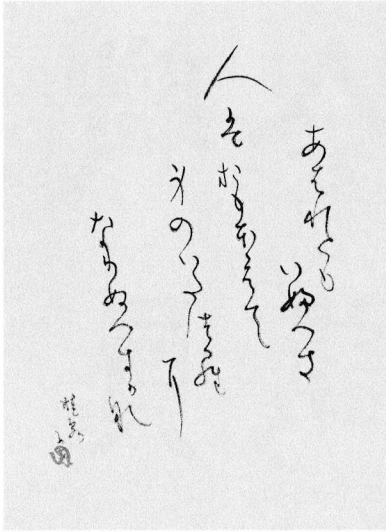 あはれとも
いふへき
人はおもほえて
身のいたつらに
なりぬへきかな